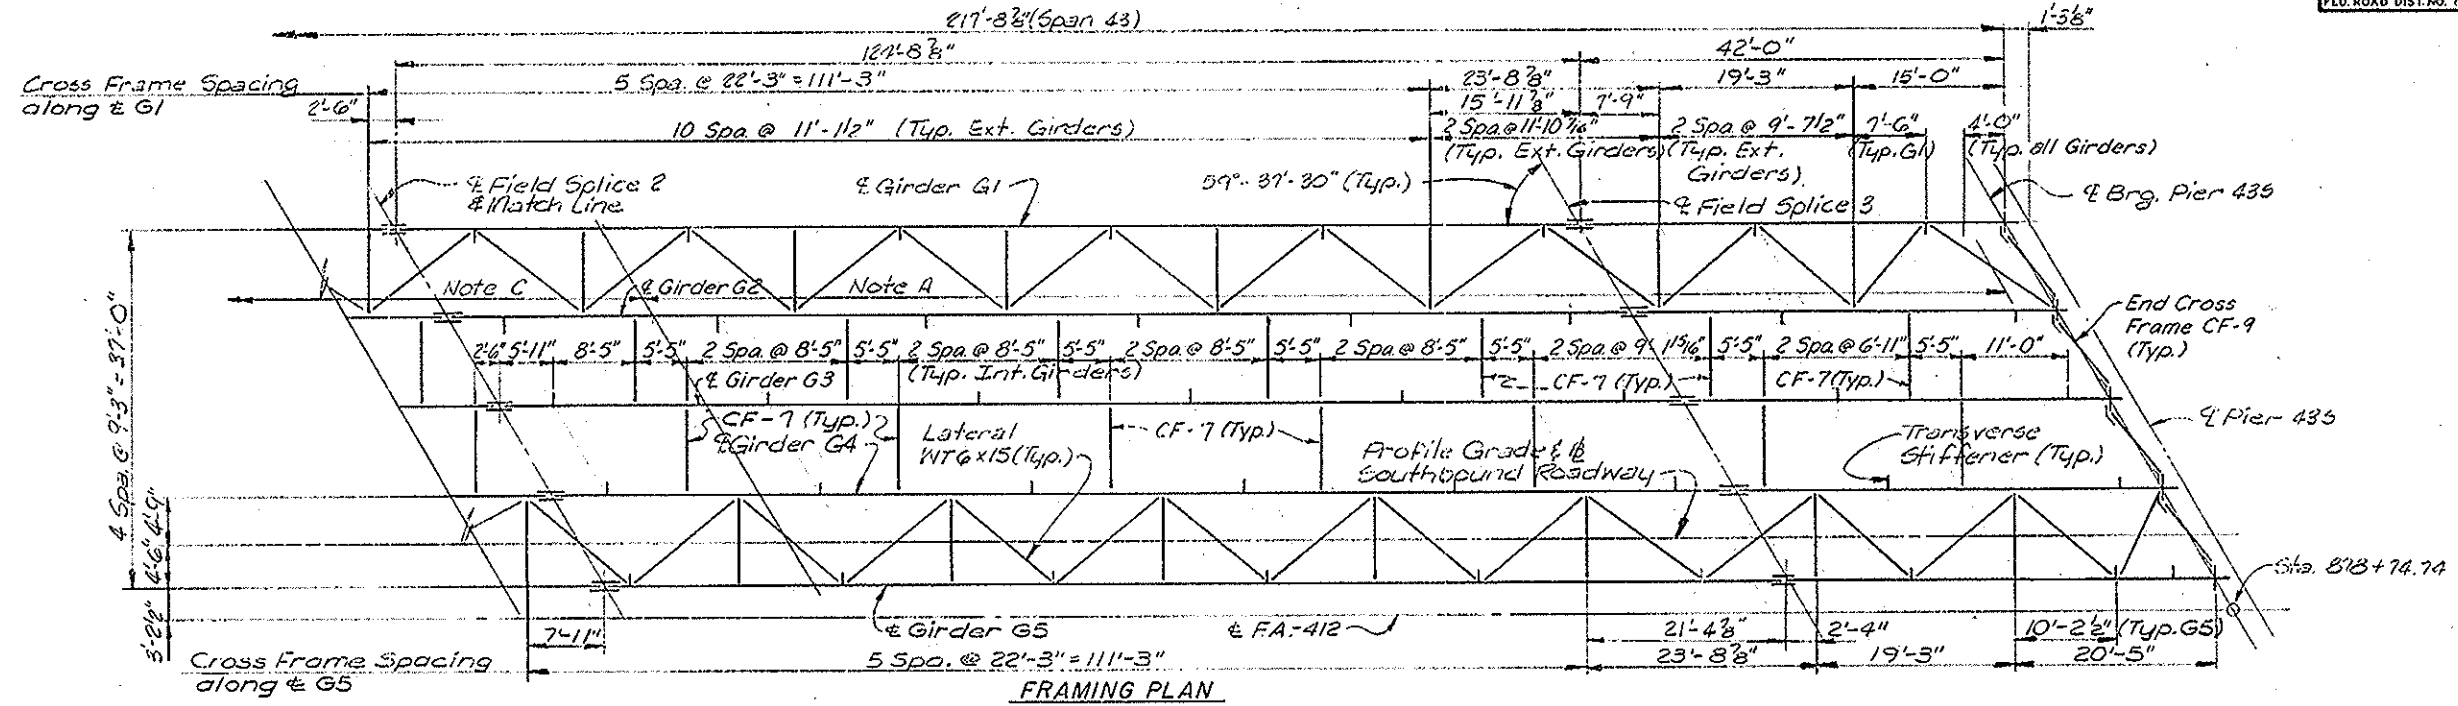 FED. ROAD DIST. NO.
217'-8⅞" (Span 43)
1'-5⅛"
124'-8⅞"
42'-0"
Cross Frame Spacing
along ℄ G1
5 Spa. @ 22'-3" = 111'-3"
23'-8⅞"
19'-3"
15'-0"
2'-6"
15'-11⅞"
7'-9"
10 Spa. @ 11'-1½" (Typ. Ext. Girders)
2 Spa. @ 11'-10 7/16"
(Typ. Ext. Girders)
2 Spa. @ 9'-7½"
(Typ. Ext.
Girders)
7'-6"
(Typ. G1)
4'-0"
(Typ. all Girders)
℄ Field Splice 2
& Match Line
℄ Girder G1
59°-37'-30" (Typ.)
℄ Field Splice 3
℄ Brg. Pier 43S
Note C
℄ Girder G2
Note A
End Cross
Frame CF-9
(Typ.)
4 Spa. @ 9'-3" = 37'-0"
2'-6"
5'-11"
8'-5"
5'-5"
2 Spa. @ 8'-5"
5'-5"
2 Spa. @ 8'-5"
(Typ. Int. Girders)
5'-5"
2 Spa. @ 8'-5"
5'-5"
2 Spa. @ 8'-5"
5'-5"
2 Spa. @ 9'-1 15/16"
5'-5"
2 Spa. @ 6'-11"
5'-5"
11'-0"
℄ Girder G3
CF-7 (Typ.)
CF-7 (Typ.)
CF-7 (Typ.)
℄ Girder G4
Lateral
WT6x15 (Typ.)
CF-7 (Typ.)
Profile Grade & ℄
Southbound Roadway
Transverse
Stiffener (Typ.)
℄ Pier 43S
4'-9"
4'-6"
3'-2½"
Sta. 878+74.74
7'-11"
℄ Girder G5
℄ F.A.-412
21'-4⅞"
2'-4"
10'-2½" (Typ. G5)
Cross Frame Spacing
along ℄ G5
5 Spa. @ 22'-3" = 111'-3"
23'-8⅞"
19'-3"
20'-5"
FRAMING PLAN